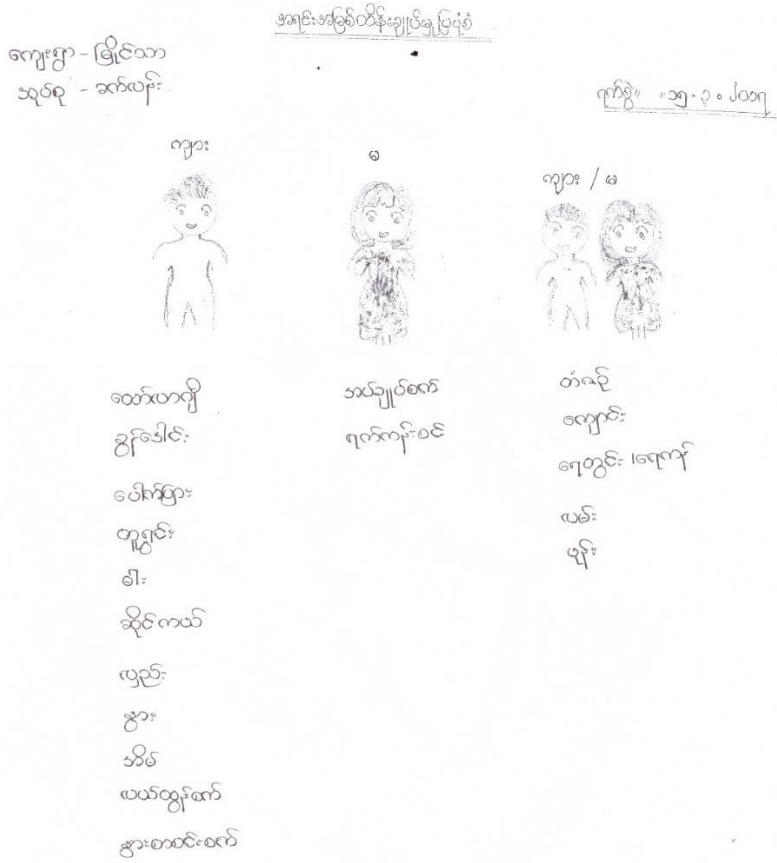 အရင်းအမြစ်ထိန်းချုပ်မှုပြပုံစံ
ကျေးရွာ - မြိုင်သာ
အုပ်စု - ခက်လန်း
ရက်စွဲ။ ။၁၅.၃.၂၀၁၇
ကျား
မ
ကျား / မ
ထော်လာဂျီ
ခွန်ဒေါင်း
ပေါက်ပြား
တူရွင်း
ဓါး
ဆိုင်ကယ်
လှည်း
နွား
အိမ်
လယ်ထွန်စက်
နွားစာစင်းစက်
အပ်ချုပ်စက်
ရက်ကန်းစင်
တံစဉ်
ကျောင်း
ရေတွင်း၊ရေကန်
လမ်း
ဖုန်း